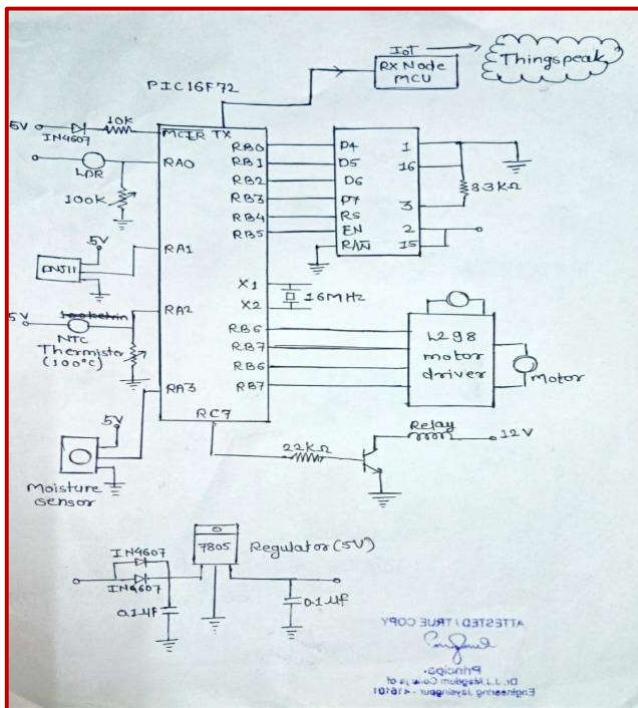 IoT
Thingspeak
Rx Node
MCU
PIC16F72
5V
10K
IN4607
MCLR TX
LDR
RA0
100k
RB0
RB1
RB2
RB3
RB4
RB5
D4
D5
D6
D7
RS
EN
1
16
3
2
15
33KΩ
5V
RA1
X1
X2
16MHz
5V
RA2
NTC
Thermister
(100°C)
RB6
RB7
RB6
RB7
L298
motor
driver
Motor
RA3
RC7
5V
Moisture
sensor
22KΩ
Relay
12V
IN4607
IN4607
7805
Regulator (5V)
0.1µF
0.1µf
ATTESTED / TRUE COPY
Principal
Dr. J.J. Magdum College of
Engineering Jaysingpur - 416101